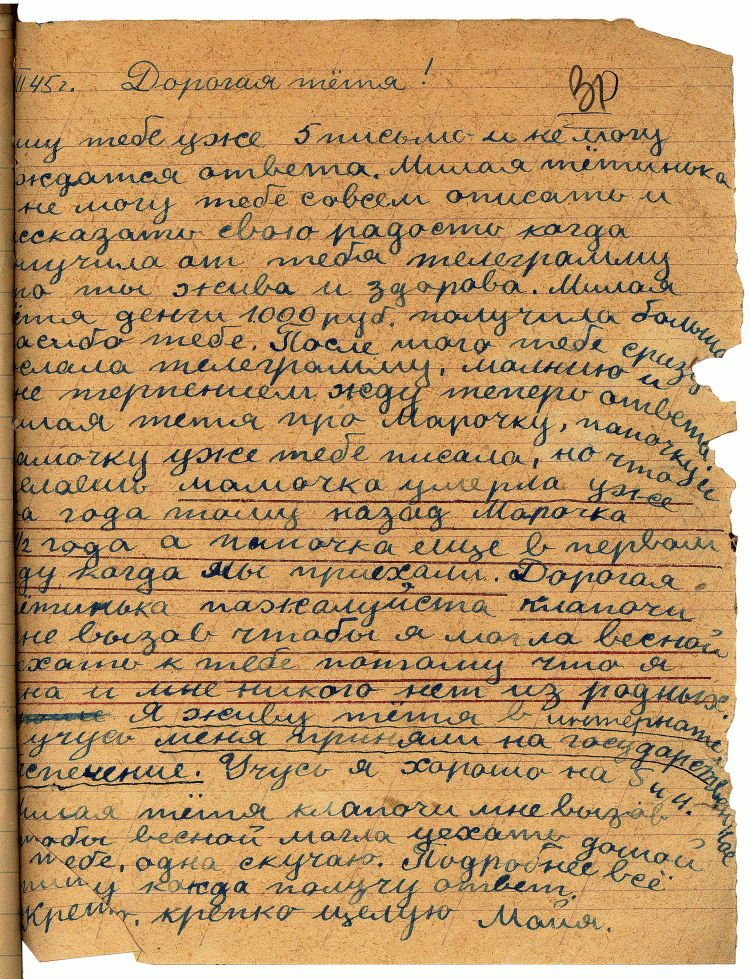 II 45 г. Дорогая тётя!
ЗР
шу тебе уже 5 письмо и не могу
ждатся ответа. Милая тётинька
не могу тебе совсем описать и
ссказать свою радость когда
лучила от тебя телеграмму
то ты жива и здорова. Милая
ётя деньги 1000 руб. получила большо
асибо тебе. После того тебе сразу
слала телеграмму, молнию и
не терпением жду теперь ответа
илая тётя про Марочку, папочку и
амочку уже тебе писала, но что
елаешь мамочка умерла уже
а года тому назад Марочка
1/2 года а папочка еще в первом
ду когда мы приехали. Дорогая
ётинька пажалуйста клапочи
не вызов чтобы я могла весной
ехать к тебе потаму что я
на и мне никого нет из родных.
Я живу тётя в интернате
учусь меня приняли на государственное
спечение. Учусь я хорошо на 5 и 4.
илая тётя клапочи мне вызов
тобы весной могла уехать домой
тебе, одна скучаю. Подробнее всё
у когда получу ответ.
Креп крепко целую Майя.